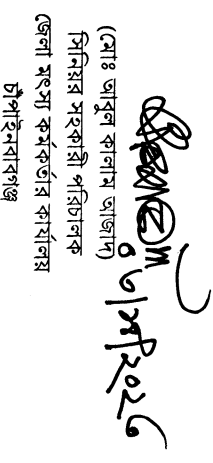 ০৩/০৭/২০২৩
(মোঃ আবুল কালাম আজাদ)
সিনিয়র সহকারী পরিচালক
জেলা মৎস্য কর্মকর্তার কার্যালয়
চাঁপাইনবাবগঞ্জ